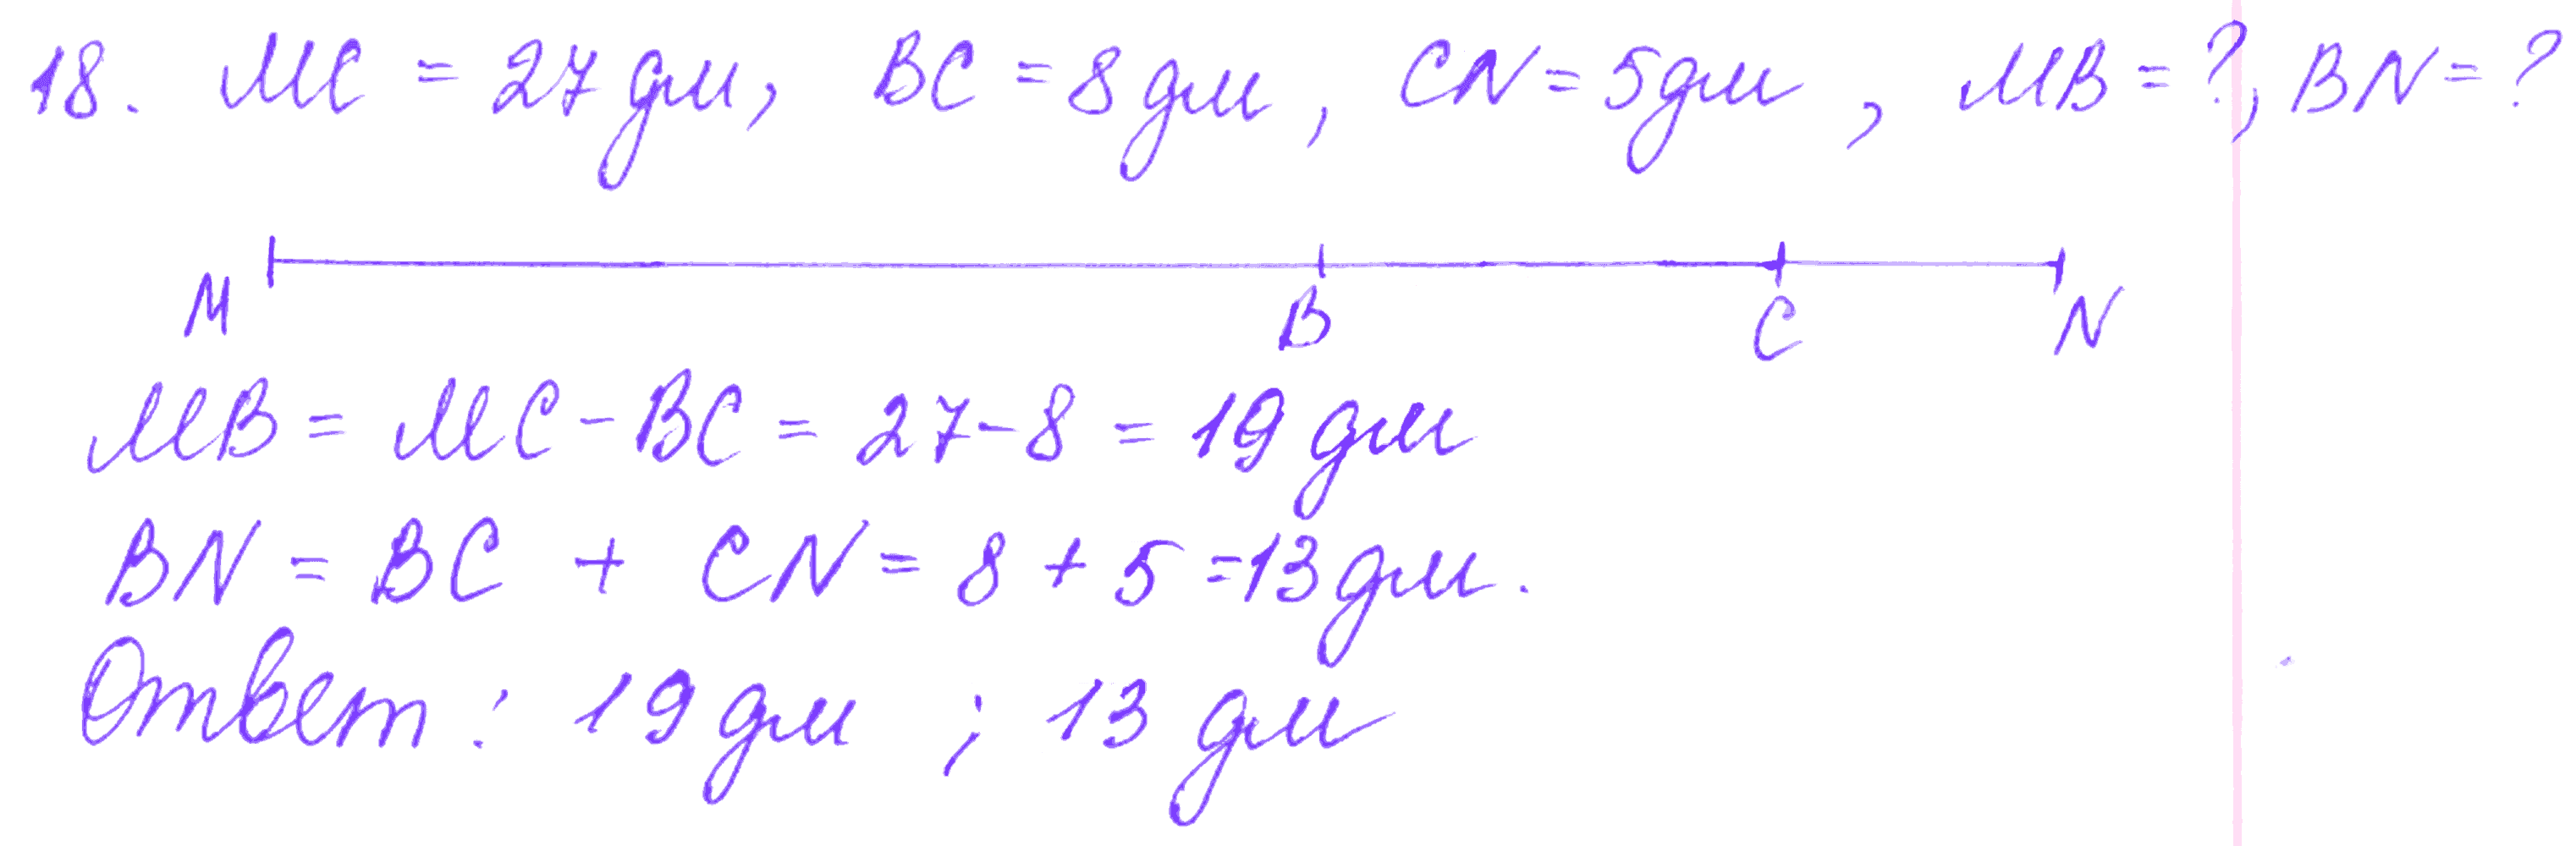 18. MC = 27 дм, BC = 8 дм, CN = 5 дм, MB = ?, BN = ?
M B C N
MB = MC - BC = 27 - 8 = 19 дм
BN = BC + CN = 8 + 5 = 13 дм.
Ответ: 19 дм ; 13 дм